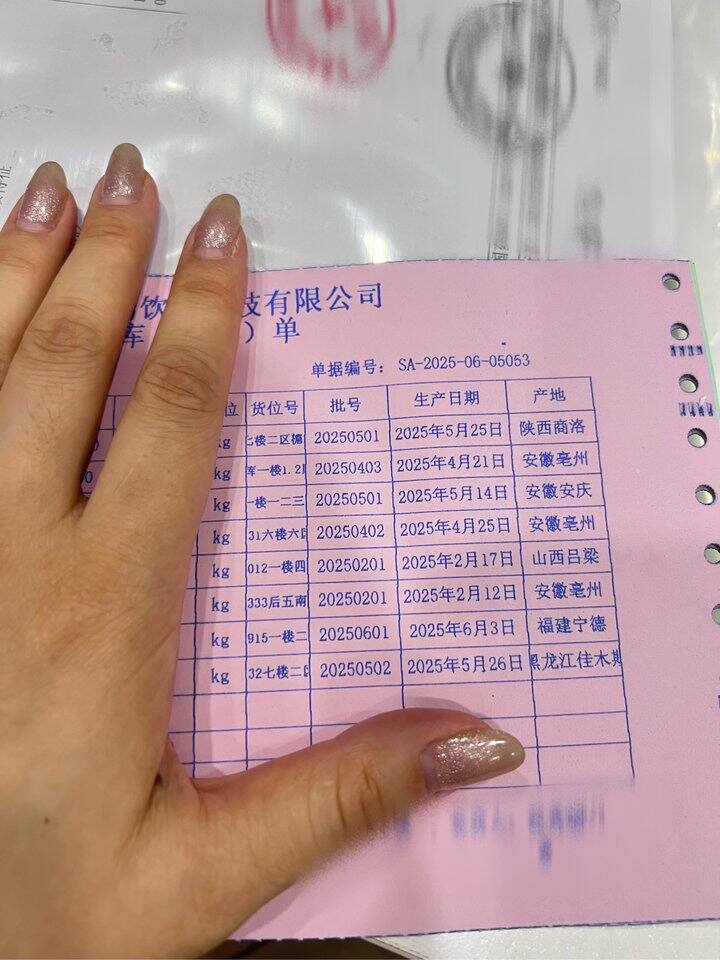 技有限公司
）单
单据编号： SA-2025-06-05053
位 货位号 批号 生产日期 产地
kg 楼二区 20250501 2025年5月25日 陕西商洛
kg 库一楼1.2 20250403 2025年4月21日 安徽亳州
kg 一楼一二三 20250501 2025年5月14日 安徽安庆
kg 31六楼六 20250402 2025年4月25日 安徽亳州
kg 012一楼四 20250201 2025年2月17日 山西吕梁
kg 333后五南 20250201 2025年2月12日 安徽亳州
kg 915一楼二 20250601 2025年6月3日 福建宁德
kg 32七楼二 20250502 2025年5月26日 黑龙江佳木斯